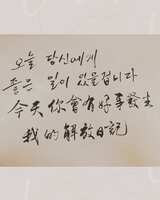 오늘 당신에게
좋은 일이 있을겁니다
今天你會有好事發生
我的解放日記